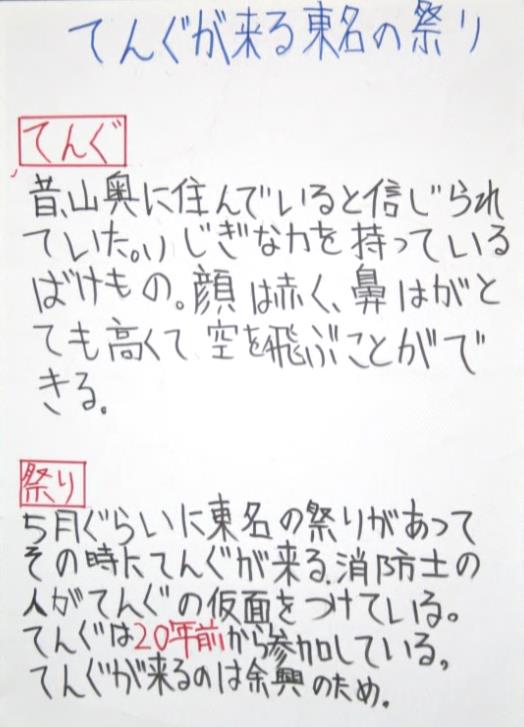 てんぐが来る東名の祭り
てんぐ
昔、山奥に住んでいると信じられ
ていた。ふしぎな力を持っている
ばけもの。顔は赤く、鼻はがと
ても高くて、空を飛ぶことがで
きる。
祭り
5月ぐらいに東名の祭りがあって
その時にてんぐが来る。消防士の
人がてんぐの仮面をつけている。
てんぐは20年前から参加している。
てんぐが来るのは余興のため。